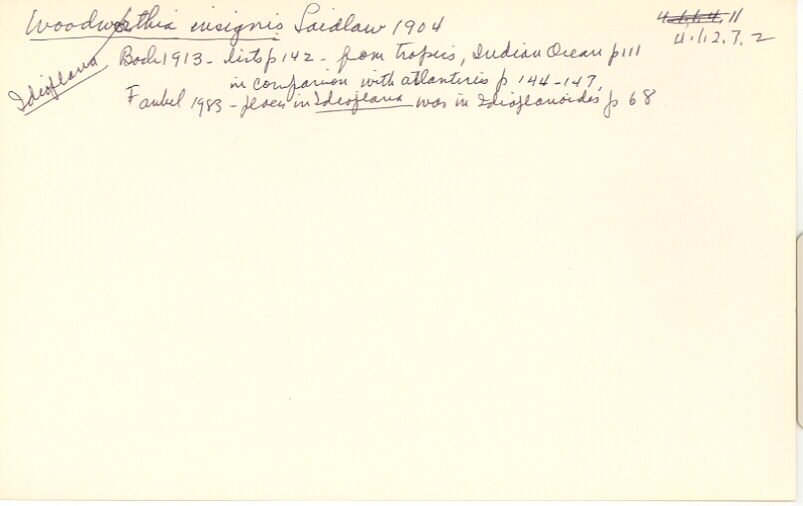 Woodworthia insignis Laidlaw 1904
4.1.64.11
4.1.12.7.2
Idioplana
Bock 1913 - lists p 142 - from tropics, Indian Ocean p 111
in comparison with atlanticus p 144-147,
Faubel 1983 - places in Idioplana was in Idioplanoides p 68